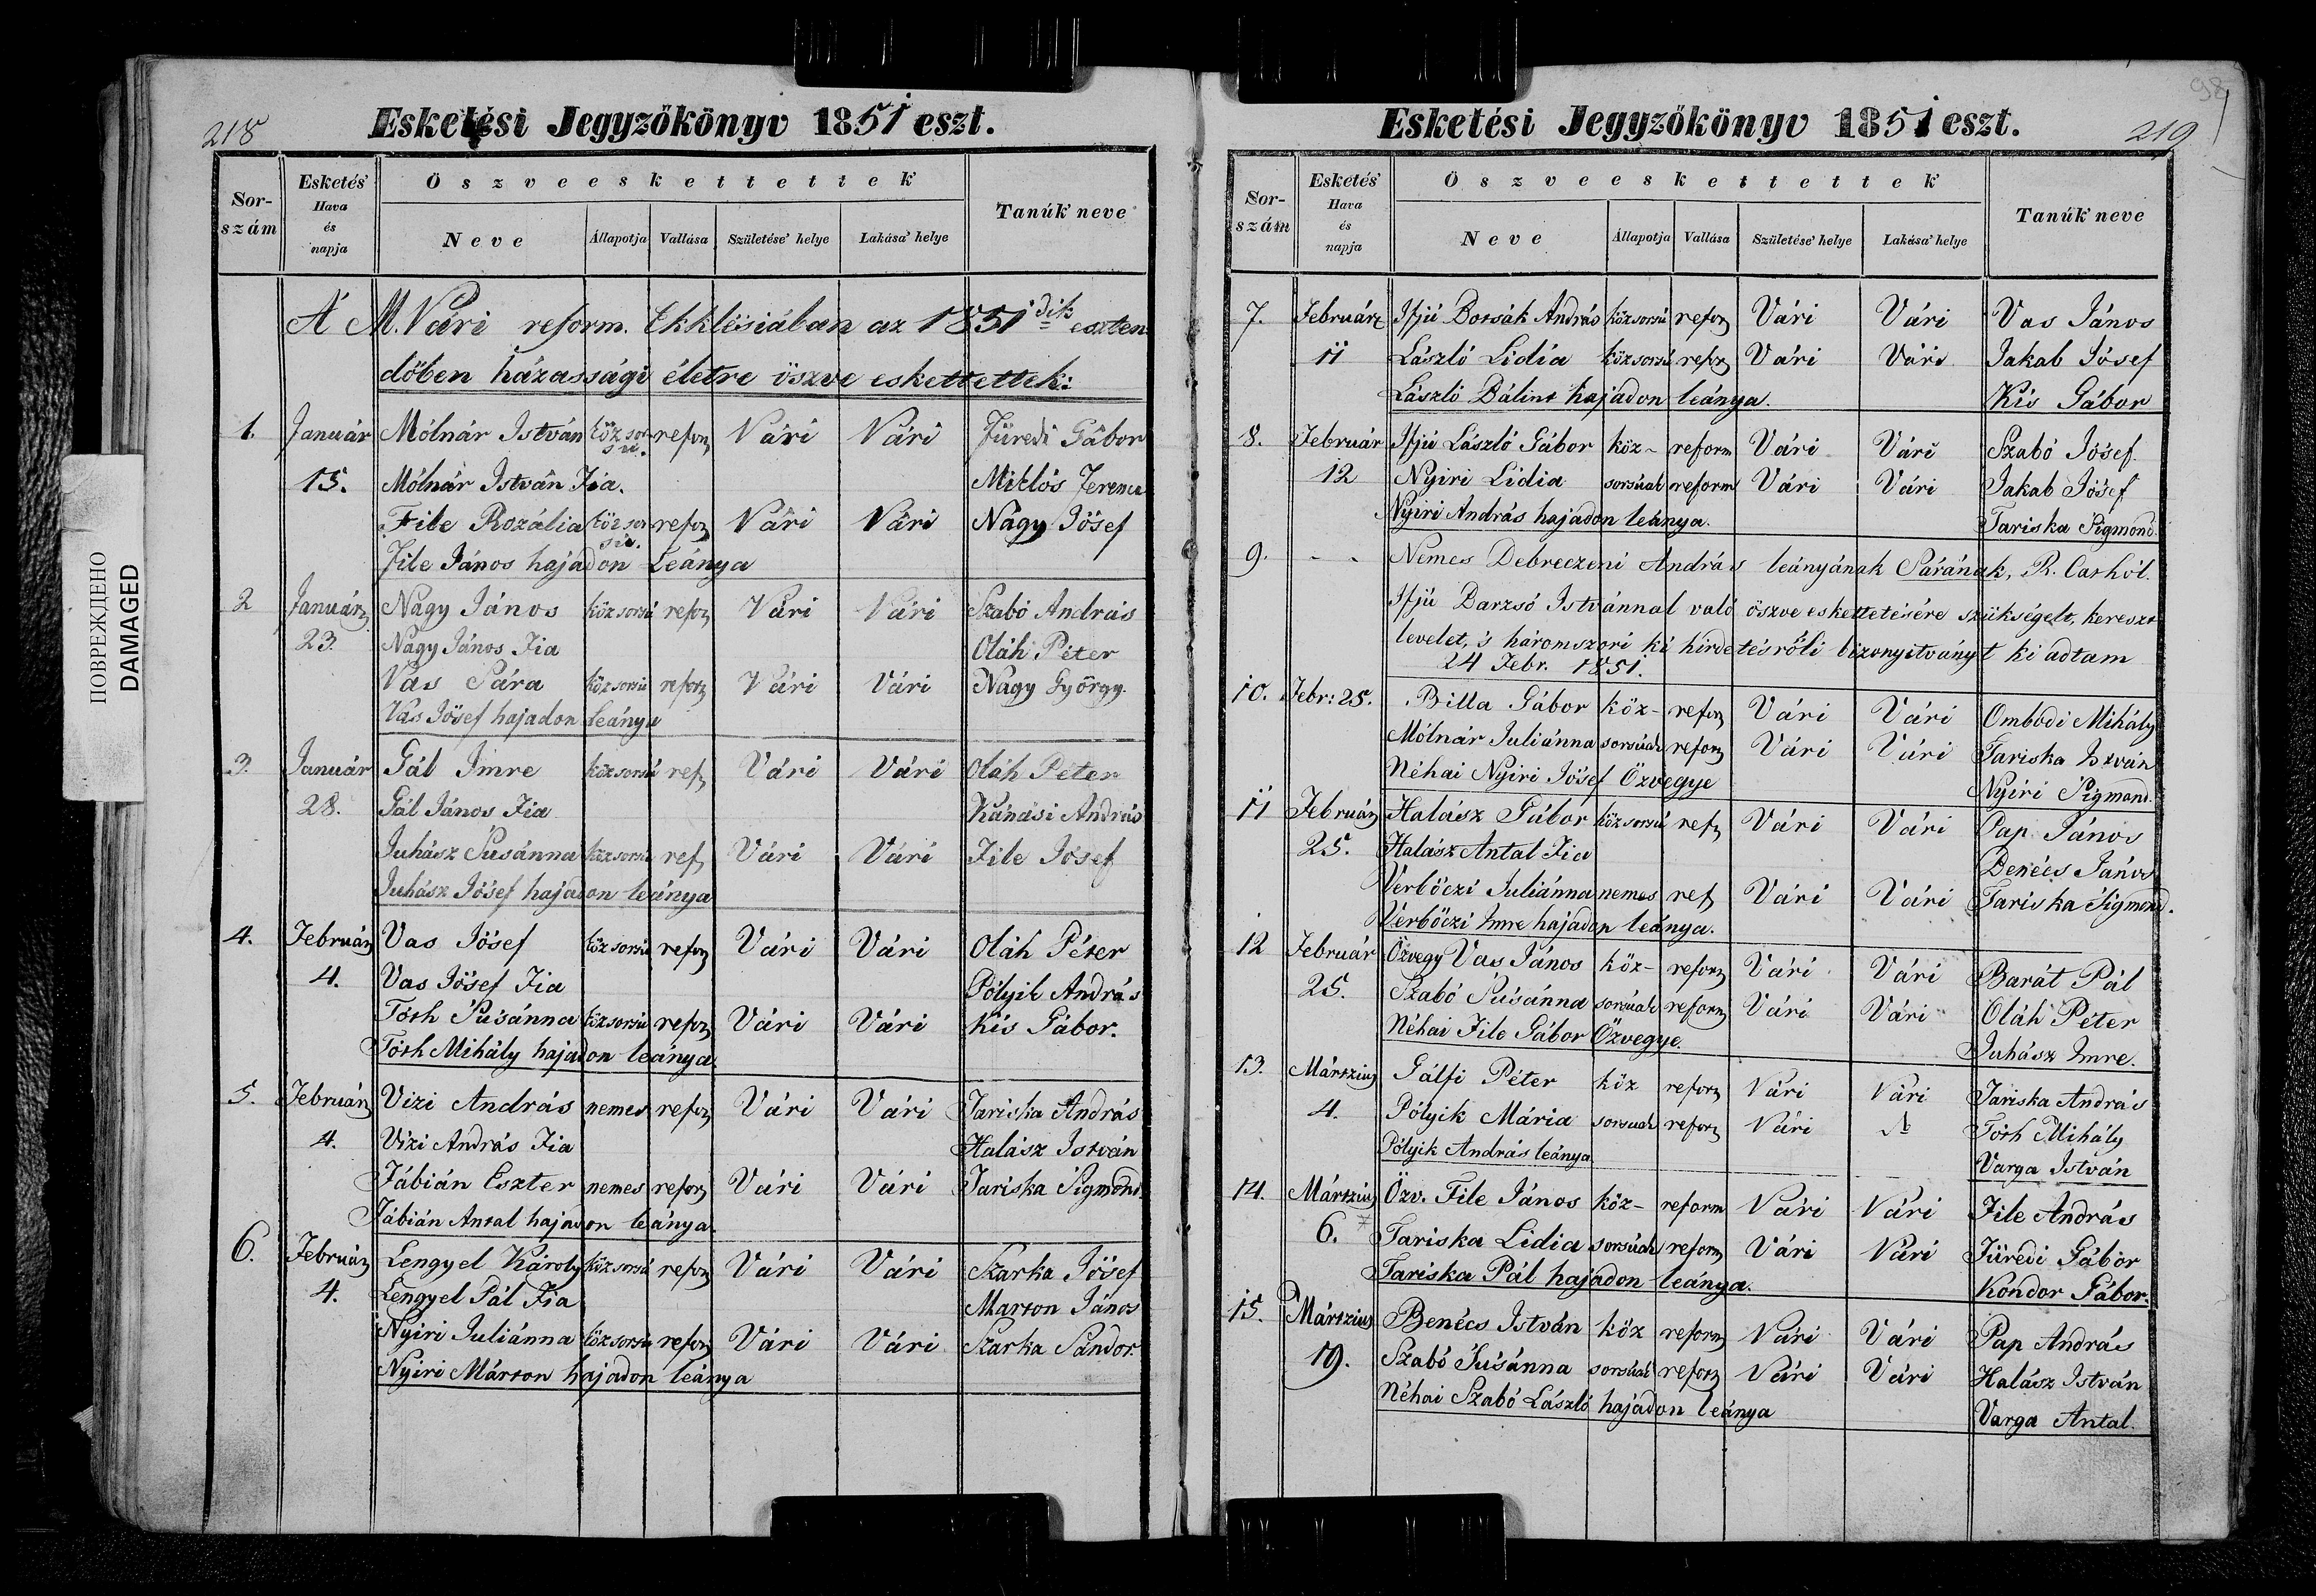 98
218
Esketési Jegyzőkönyv 1851 eszt.
Sor-szám
Esketés' Hava és napja
Öszveeskettettek
Neve
Állapotja
Vallása
Születése' helye
Lakása' helye
Tanúk' neve
A' M. Vári reform. Ekklésiában az 1851dik eszten
dőben házassági életre öszve eskettettek:
1. Január Mólnár István köz sor reform Vári Vári Füredi Gábor
sú.
15. Mólnár István Fia. Miklós Ferencz
File Rozália köz sor reform Vári Vári Nagy Jósef
sú.
File János hajadon Leánya
2 Január Nagy János köz sorsú reform Vári Vári Szabó András
23. Nagy János Fia Oláh Péter
Vas Sára köz sorsú reform Vári Vári Nagy György.
Vas Jósef hajadon leánya
3. Január Gál Imre köz sorsú ref Vári Vári Oláh Péter
28. Gál János Fia Kanási András
Juhász Susánna köz sorsú ref Vári Vári File Jósef
Juhász Jósef hajadon leánya
4. Február Vas Jósef köz sorsú reform Vári Vári Oláh Péter
4. Vas Jósef Fia Pólyik András
Tóth Susánna köz sorsú reform Vári Vári Kis Gábor.
Tóth Mihály hajadon leánya.
5. Február Vizi András nemes reform Vári Vári Tariska András
4. Vizi András Fia Halász István
Fábián Eszter nemes reform Vári Vári Tariska Sigmond
Fábián Antal hajadon leánya.
6. Február Lengyel Károly köz sorsú reform Vári Vári Szarka Jósef
4. Lengyel Pál Fia Marton János
Nyiri Juliánna köz sorsú reform Vári Vári Szarka Sándor.
Nyiri Márton hajadon leánya
Esketési Jegyzőkönyv 1851 eszt.
219
Sor-szám
Esketés' Hava és napja
Öszveeskettettek
Neve
Állapotja
Vallása
Születése' helye
Lakása' helye
Tanúk' neve
7. Február Ifjú Borsák András köz sorsú reform Vári Vári Vas János
11 László Lidia köz sorsú reform Vári Vári Jakab Jósef
László Bálint hajadon leánya. Kis Gábor
8. Február Ifjú László Gábor köz- reform Vári Vári Szabó Jósef.
12 Nyiri Lidia sorsúak reform Vári Vári Jakab Jósef
Nyiri András hajadon leánya. Tariska Sigmond.
9. - - Nemes Debreczeni András leányának Sárának, R. Cathól.
Ifjú Barzsó Istvánnal való öszve eskettetésére szükségelt, kereszt
levelet, 's háromszori ki hirdetésről bizonyitványt ki adtam
24 Febr. 1851.
10. Febr: 25. Billa Gábor köz- reform Vári Vári Ombódi Mihály
Mólnár Juliánna sorsúak reform Vári Vári Tariska István
Néhai Nyiri Jósef Özvegye Nyiri Sigmond.
11 Február Halász Gábor köz sorsú ref Vári Vári Pap János
25. Halász Antal Fia Benécs János
Verbőczi Juliánna nemes ref Vári Vári Tariska Sigmond.
Verbőczi Imre hajadon leánya.
12 Február Özvegy Vas János köz- reform Vári Vári Barát Pál
25. Szabó Susánna sorsúak reform Vári Vári Oláh Péter
Néhai File Gábor Özvegye. Juhász Imre.
13. Mártzius Gálfi Péter köz reform Vári Vári Tariska András
4. Pólyik Mária sorsuak reform Vári Tóth Mihály
Pólyik András leánya Varga István
14. Mártzius Özv. File János köz- reform Vári Vári File András
6. Tariska Lidia sorsúak reform Vári Vári Füredi Gábor
Tariska Pál hajadon leánya. Kondor Gábor.
15. Mártzius Benécs István köz reform Vári Vári Pap András
19. Szabó Susánna sorsúak reform Vári Vári Halász István
Néhai Szabó László hajadon leánya Varga Antal.
ПОВРЕЖДЕНО
DAMAGED